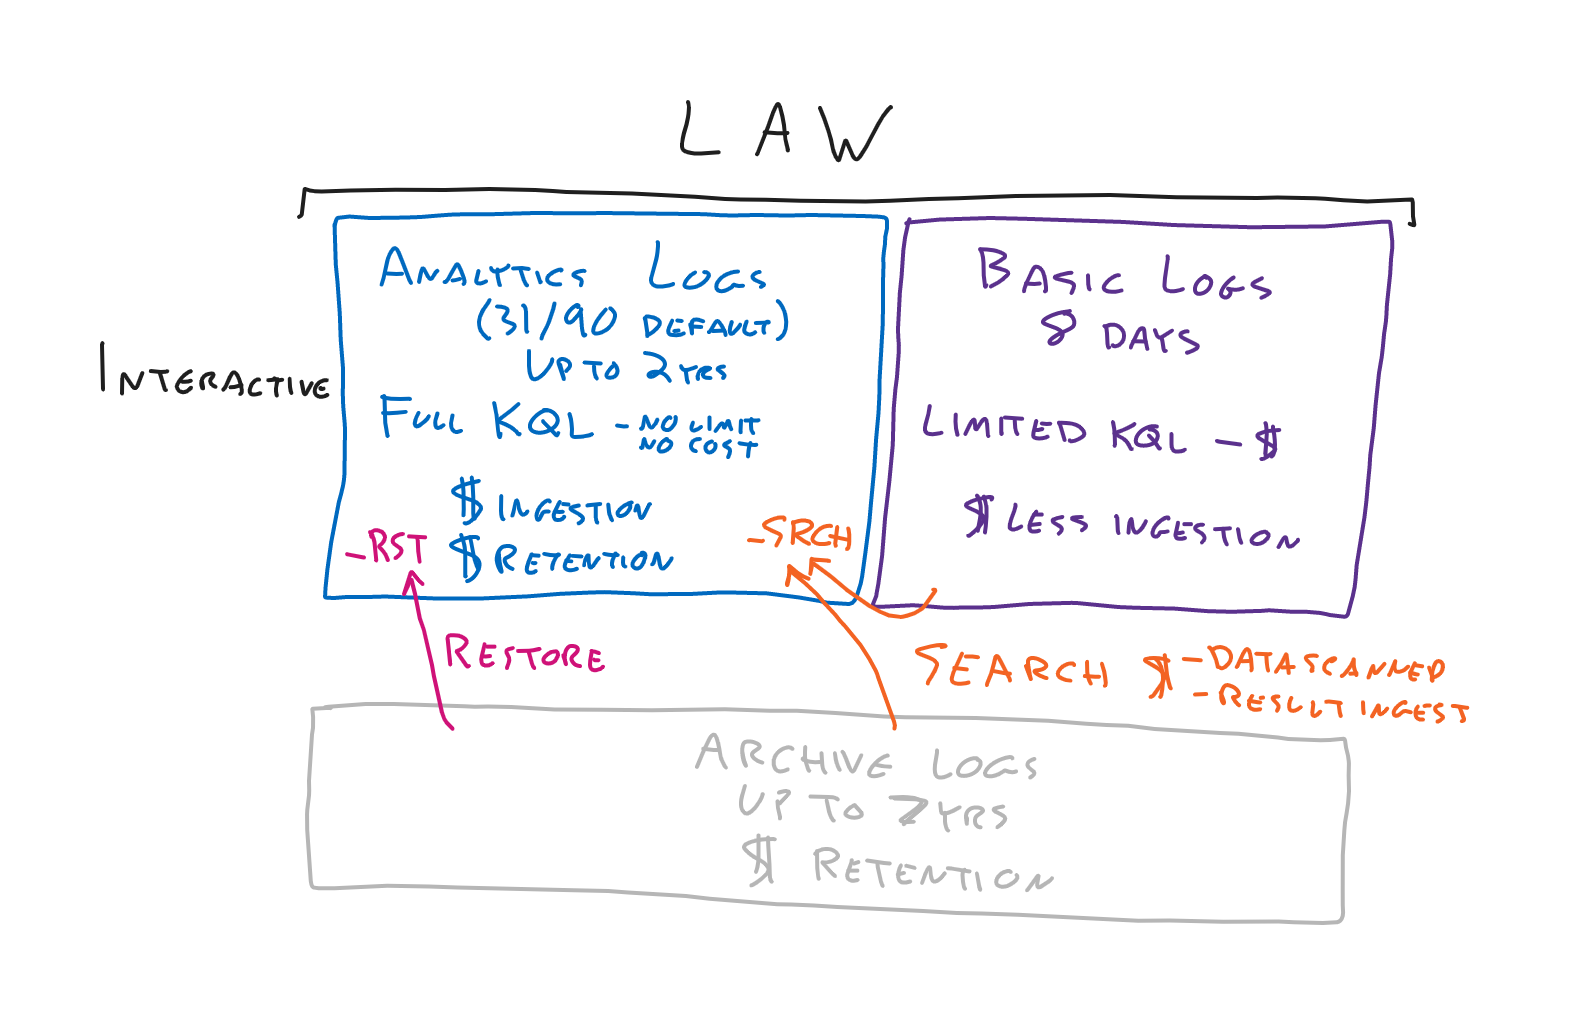 LAW
INTERACTIVE
ANALYTICS LOGS
(31/90 DEFAULT)
UP TO 2 YRS
FULL KQL - NO LIMIT
NO COST
$ INGESTION
$ RETENTION
_RST
_SRCH
BASIC LOGS
8 DAYS
LIMITED KQL - $
$ LESS INGESTION
RESTORE
SEARCH $ - DATA SCANNED
- RESULT INGEST
ARCHIVE LOGS
UP TO 7 YRS
$ RETENTION